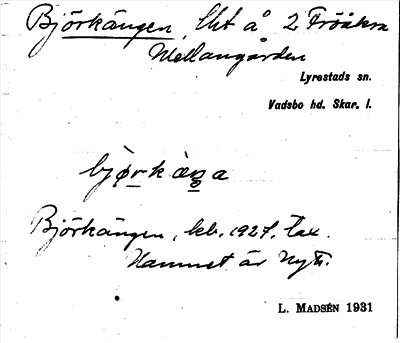 Björkängen, lht å 2 Fröåkra
Mellangården
Lyrestads sn.
Vadsbo hd. Skar. l.
bjørkæŋa
Björkängen, kb. 1927, tax.
Namnet är nytt.
L. MADSÉN 1931